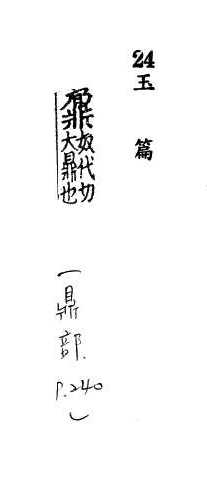 24
玉篇
鼐奴代切
大鼎也
(鼎部.
P.240)